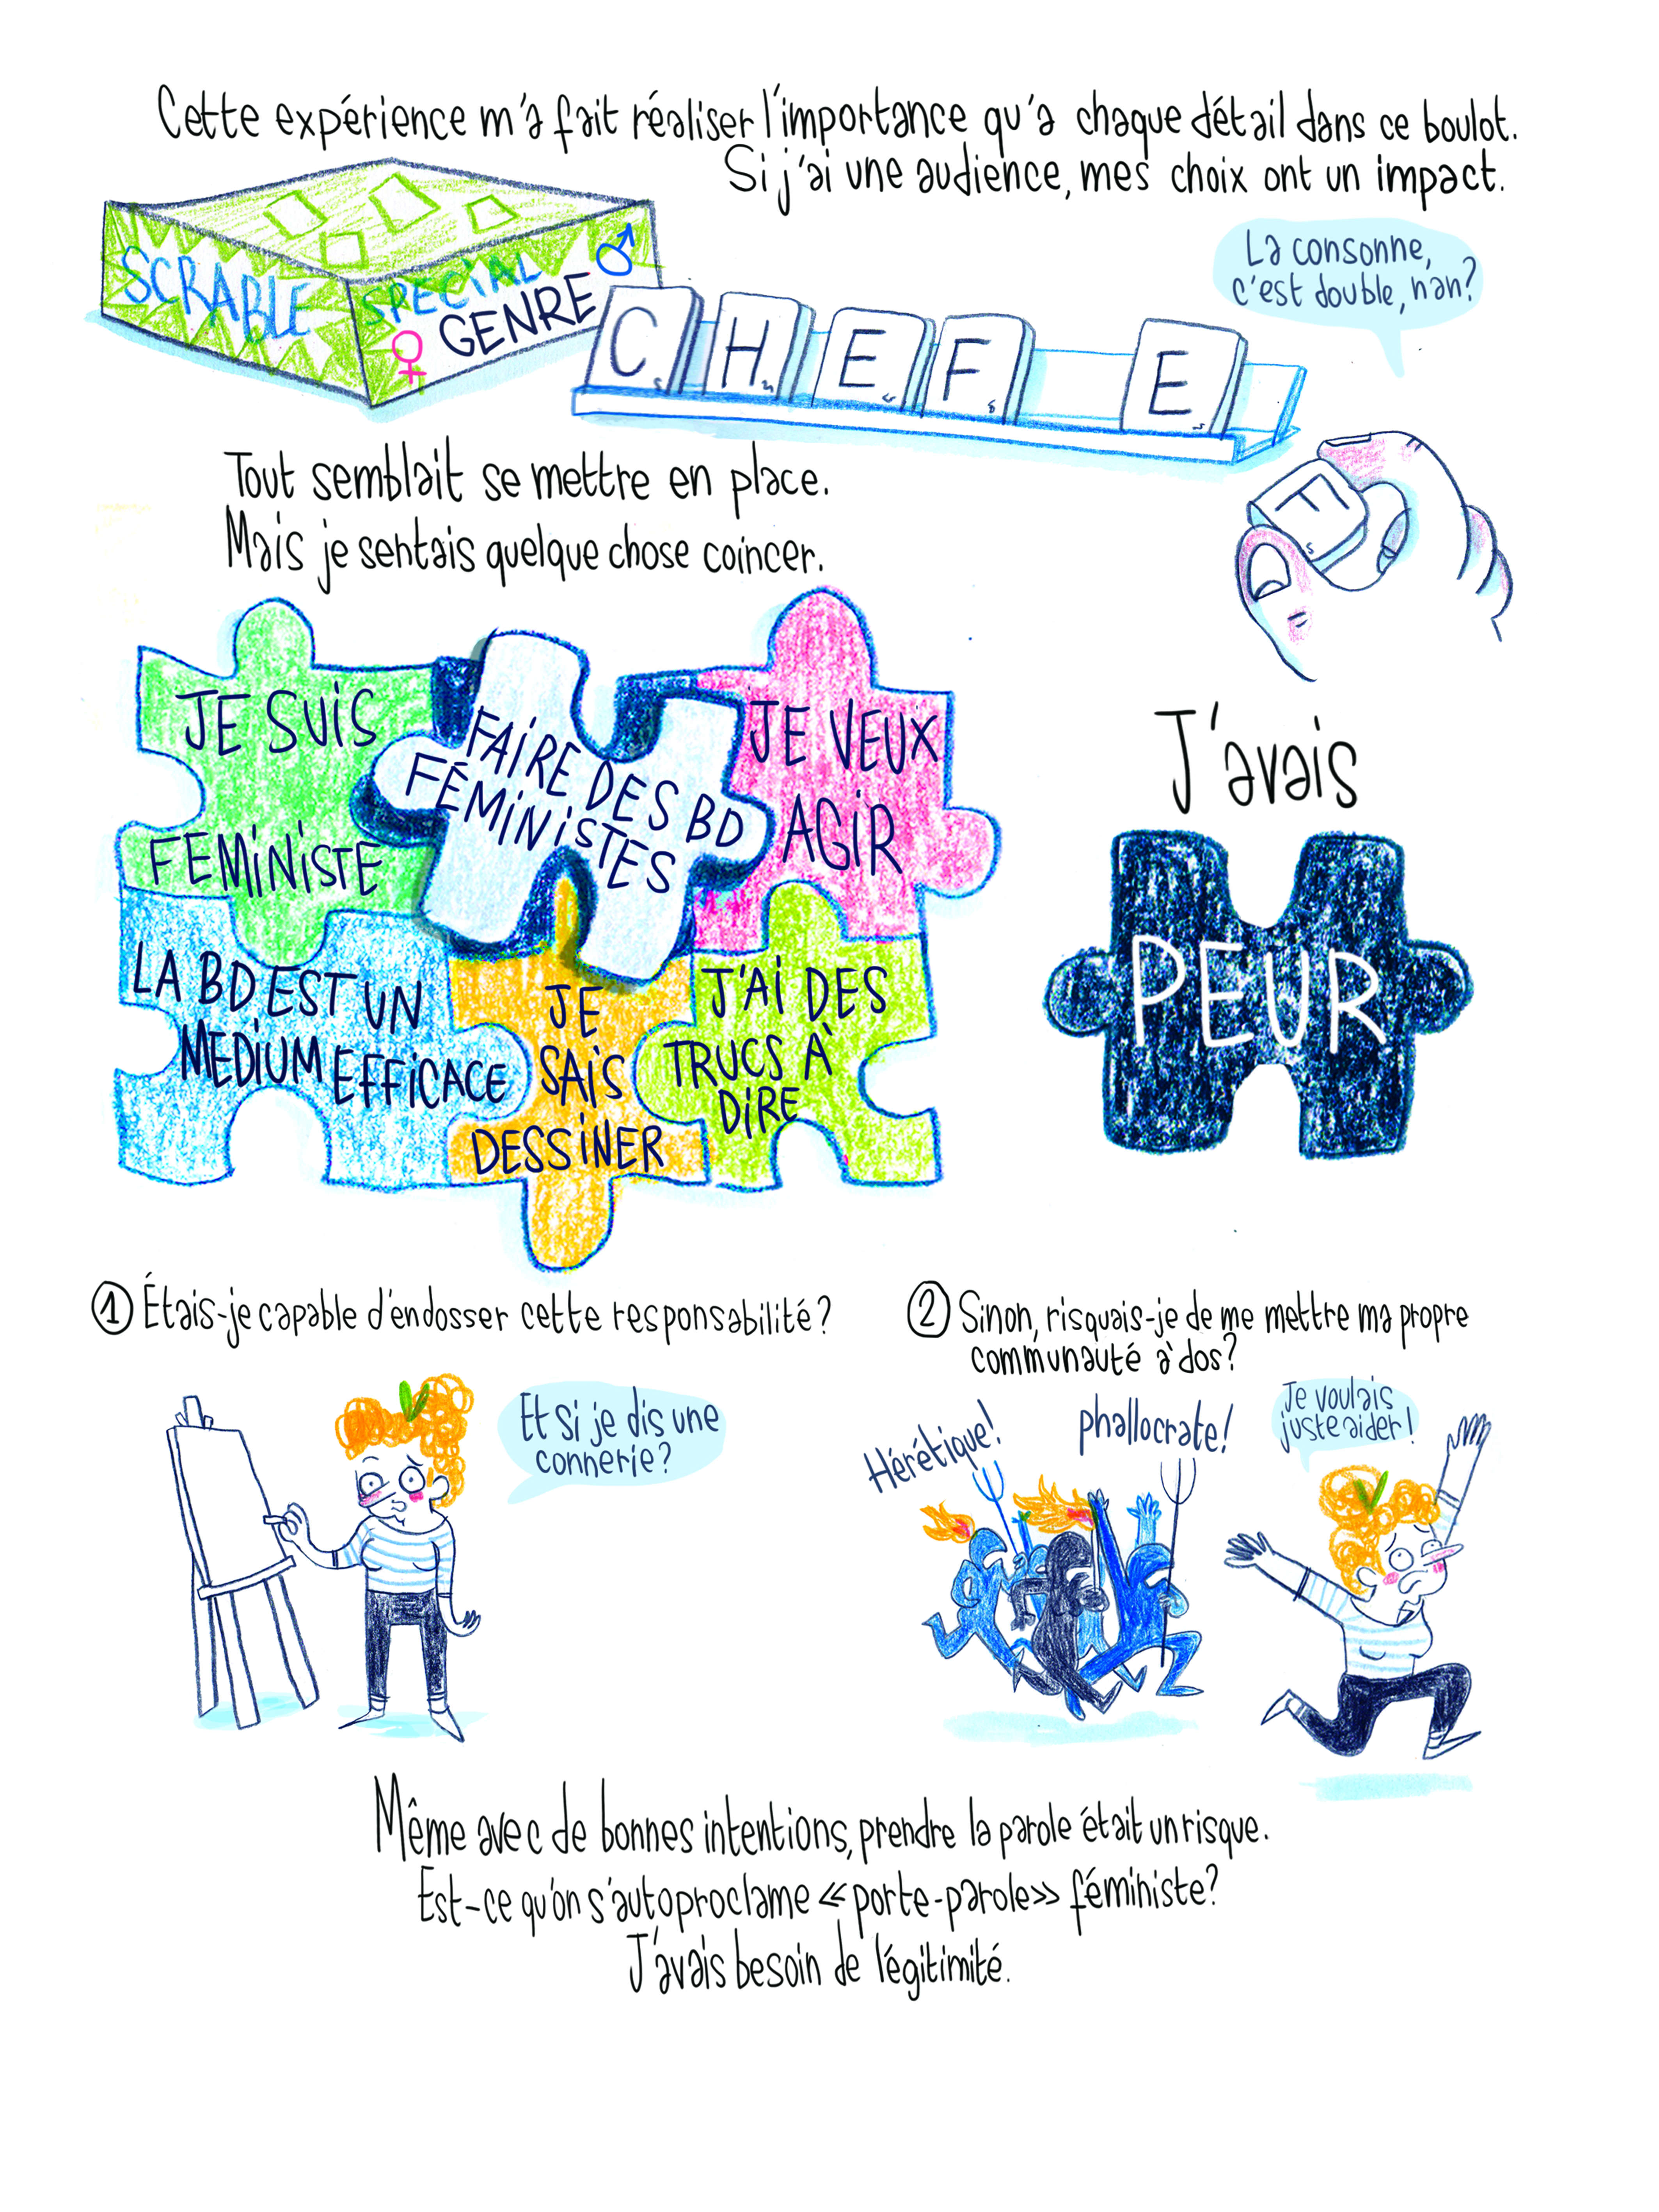 Cette expérience m'a fait réaliser l'importance qu'a chaque détail dans ce boulot.
Si j'ai une audience, mes choix ont un impact.
SCRABLE
SPECIAL
♀ GENRE ♂
C H E F E
La consonne,
c'est double, nan?
F
Tout semblait se mettre en place.
Mais je sentais quelque chose coincer.
JE SUIS
FEMINISTE
FAIRE DES BD
FÉMINISTES
JE VEUX
AGIR
LA BD EST UN
MEDIUM EFFICACE
JE
SAIS
DESSINER
J'AI DES
TRUCS À
DIRE
J'avais
PEUR
① Étais-je capable d'endosser cette responsabilité?
Et si je dis une
connerie?
② Sinon, risquais-je de me mettre ma propre
communauté à dos?
Hérétique!
phallocrate!
Je voulais
juste aider!
Même avec de bonnes intentions, prendre la parole était un risque.
Est-ce qu'on s'autoproclame «porte-parole» féministe?
J'avais besoin de légitimité.